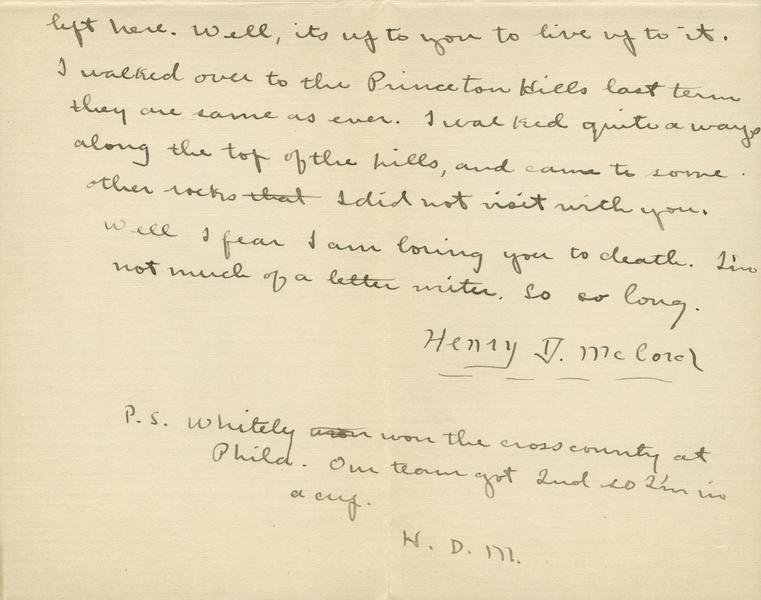 left here. Well, its up to you to live up to it.
I walked over to the Princeton Hills last term
they are same as ever. I walked quite a ways
along the top of the hills, and came to some
other rocks that I did not visit with you.
Well I fear I am boring you to death. I'm
not much of a letter writer. So so long.
Henry D. McCord
P.S. Whitely won won the crosscounty at
Phila. Our team got 2nd so I'm in
a cup.
H. D. M.